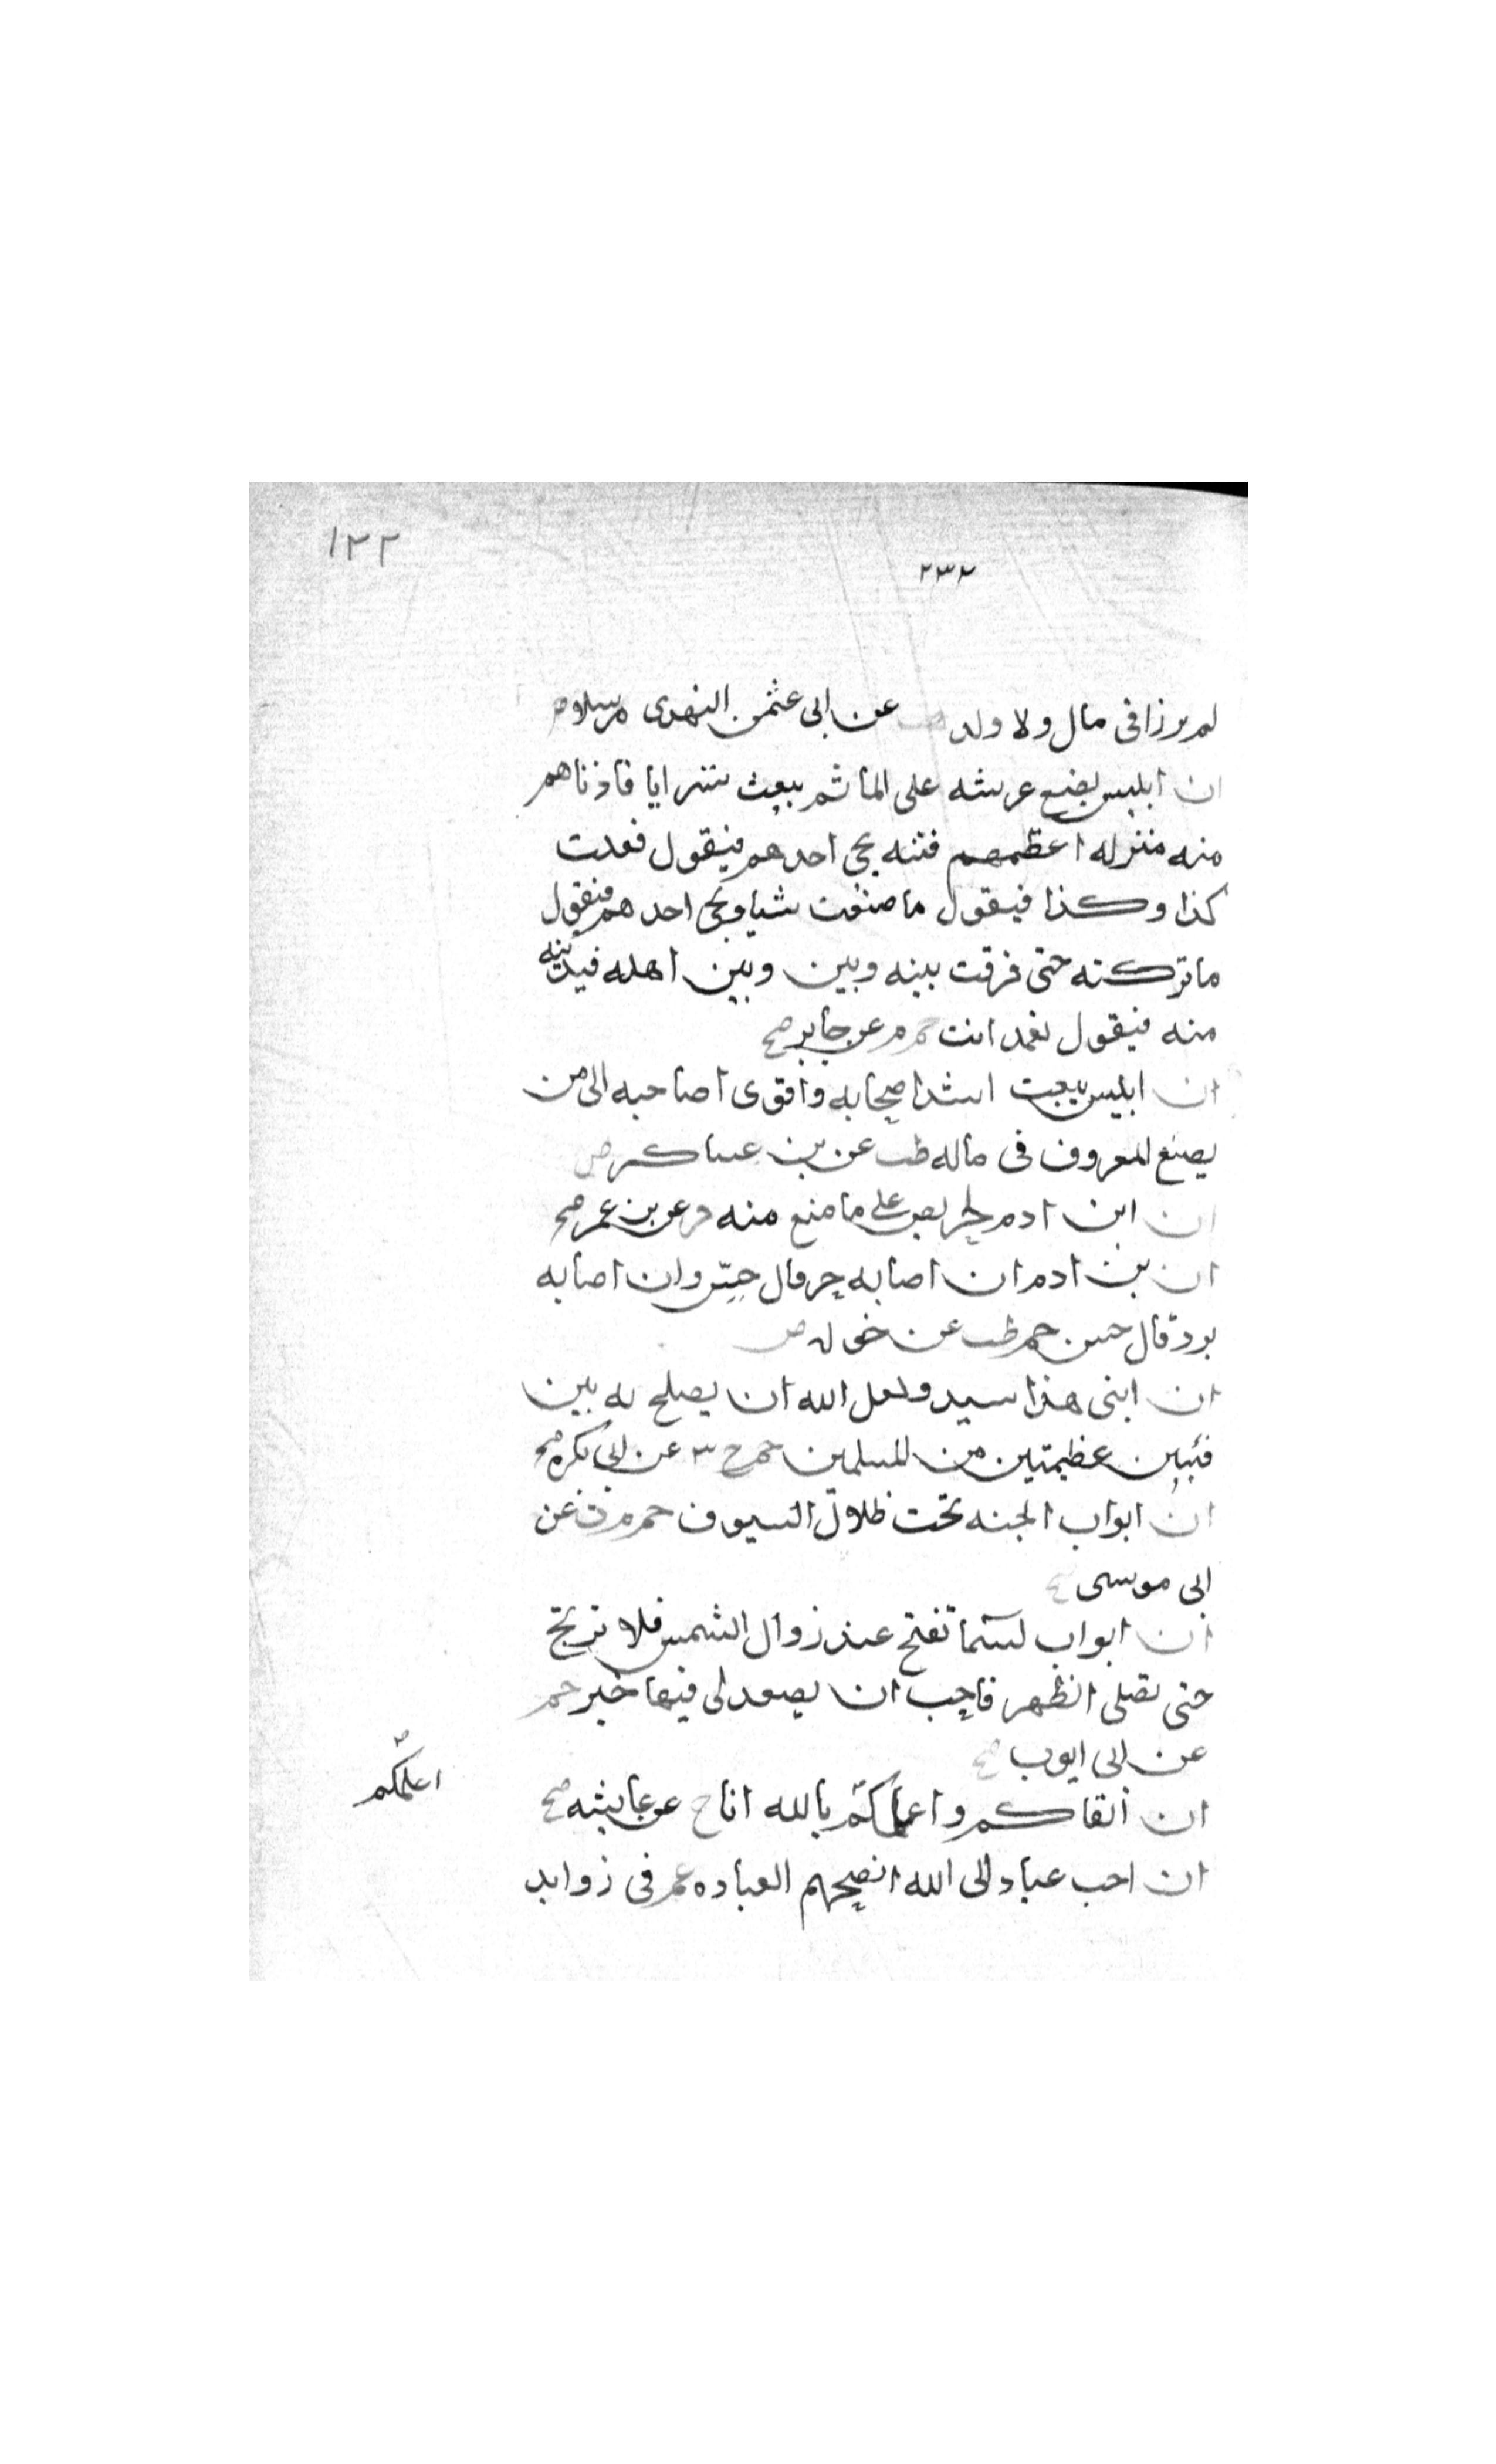 ١٢٢
٢٣٢
لم يرزا فى مال ولا ولد هب عن ابى عثمن النهدى مرسلا
ان ابليس يضع عرشه على الما ثم يبعث سرايا فادناهم
منه منزله اعظمهم فتنه يجى احدهم فيقول فعلت
كذا وكذا فيقول ما صنعت شيا ويجى احدهم فيقول
ما تركته حتى فرقت بينه وبين وبين اهله فيدنيه
منه فيقول نعم انت حم م عن جابر صح
ان ابليس يبعث اشد اصحابه واقوى اصاحبه الى من
يصنع المعروف فى ماله طب عن بن عباكر ض
ان ابن ادم لحريص على ما منع منه فر عن بن عمر صح
ان بن ادم ان اصابه حر قال حس وان اصابه
برد قال حس حم طب عن خوله ض
ان ابنى هذا سيد ولعل الله ان يصلح به بين
فئيين عظيمتين من المسلمين حم خ ٣ عن ابى بكره صح
ان ابواب الجنه تحت ظلال السيوف حم م ت عن
ابى موسى صح
ان ابواب لسما تفتح عند زوال الشمس فلا ترتج
حتى تصلى الظهر فاحب ان يصعد لى فيها خير حم
عن ابى ايوب صح
ان اتقاكم واعلمكم بالله انا خ عن عايشه صح
اعلمكم
ان احب عباد الى الله انصحهم العباده عم فى زوايد